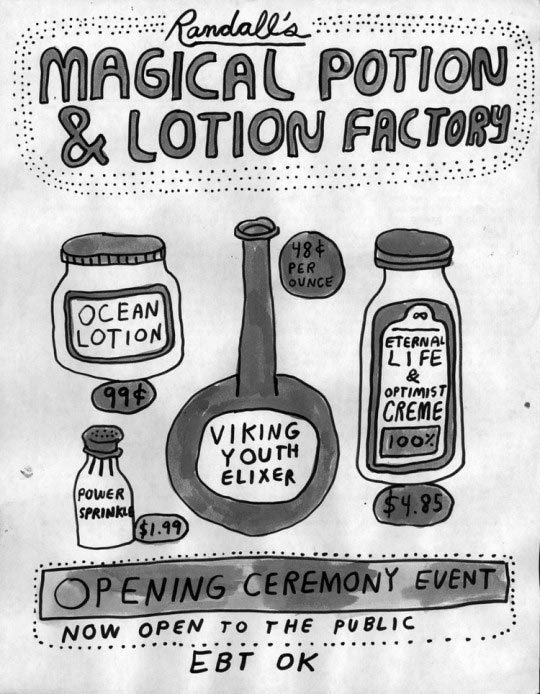 Randall's
MAGICAL POTION
& LOTION FACTORY
48¢
PER
OUNCE
OCEAN
LOTION
99¢
VIKING
YOUTH
ELIXER
∞
ETERNAL
LIFE
&
OPTIMIST
CREME
100%
$4.85
POWER
SPRINKLE
$1.99
OPENING CEREMONY EVENT
NOW OPEN TO THE PUBLIC
EBT OK